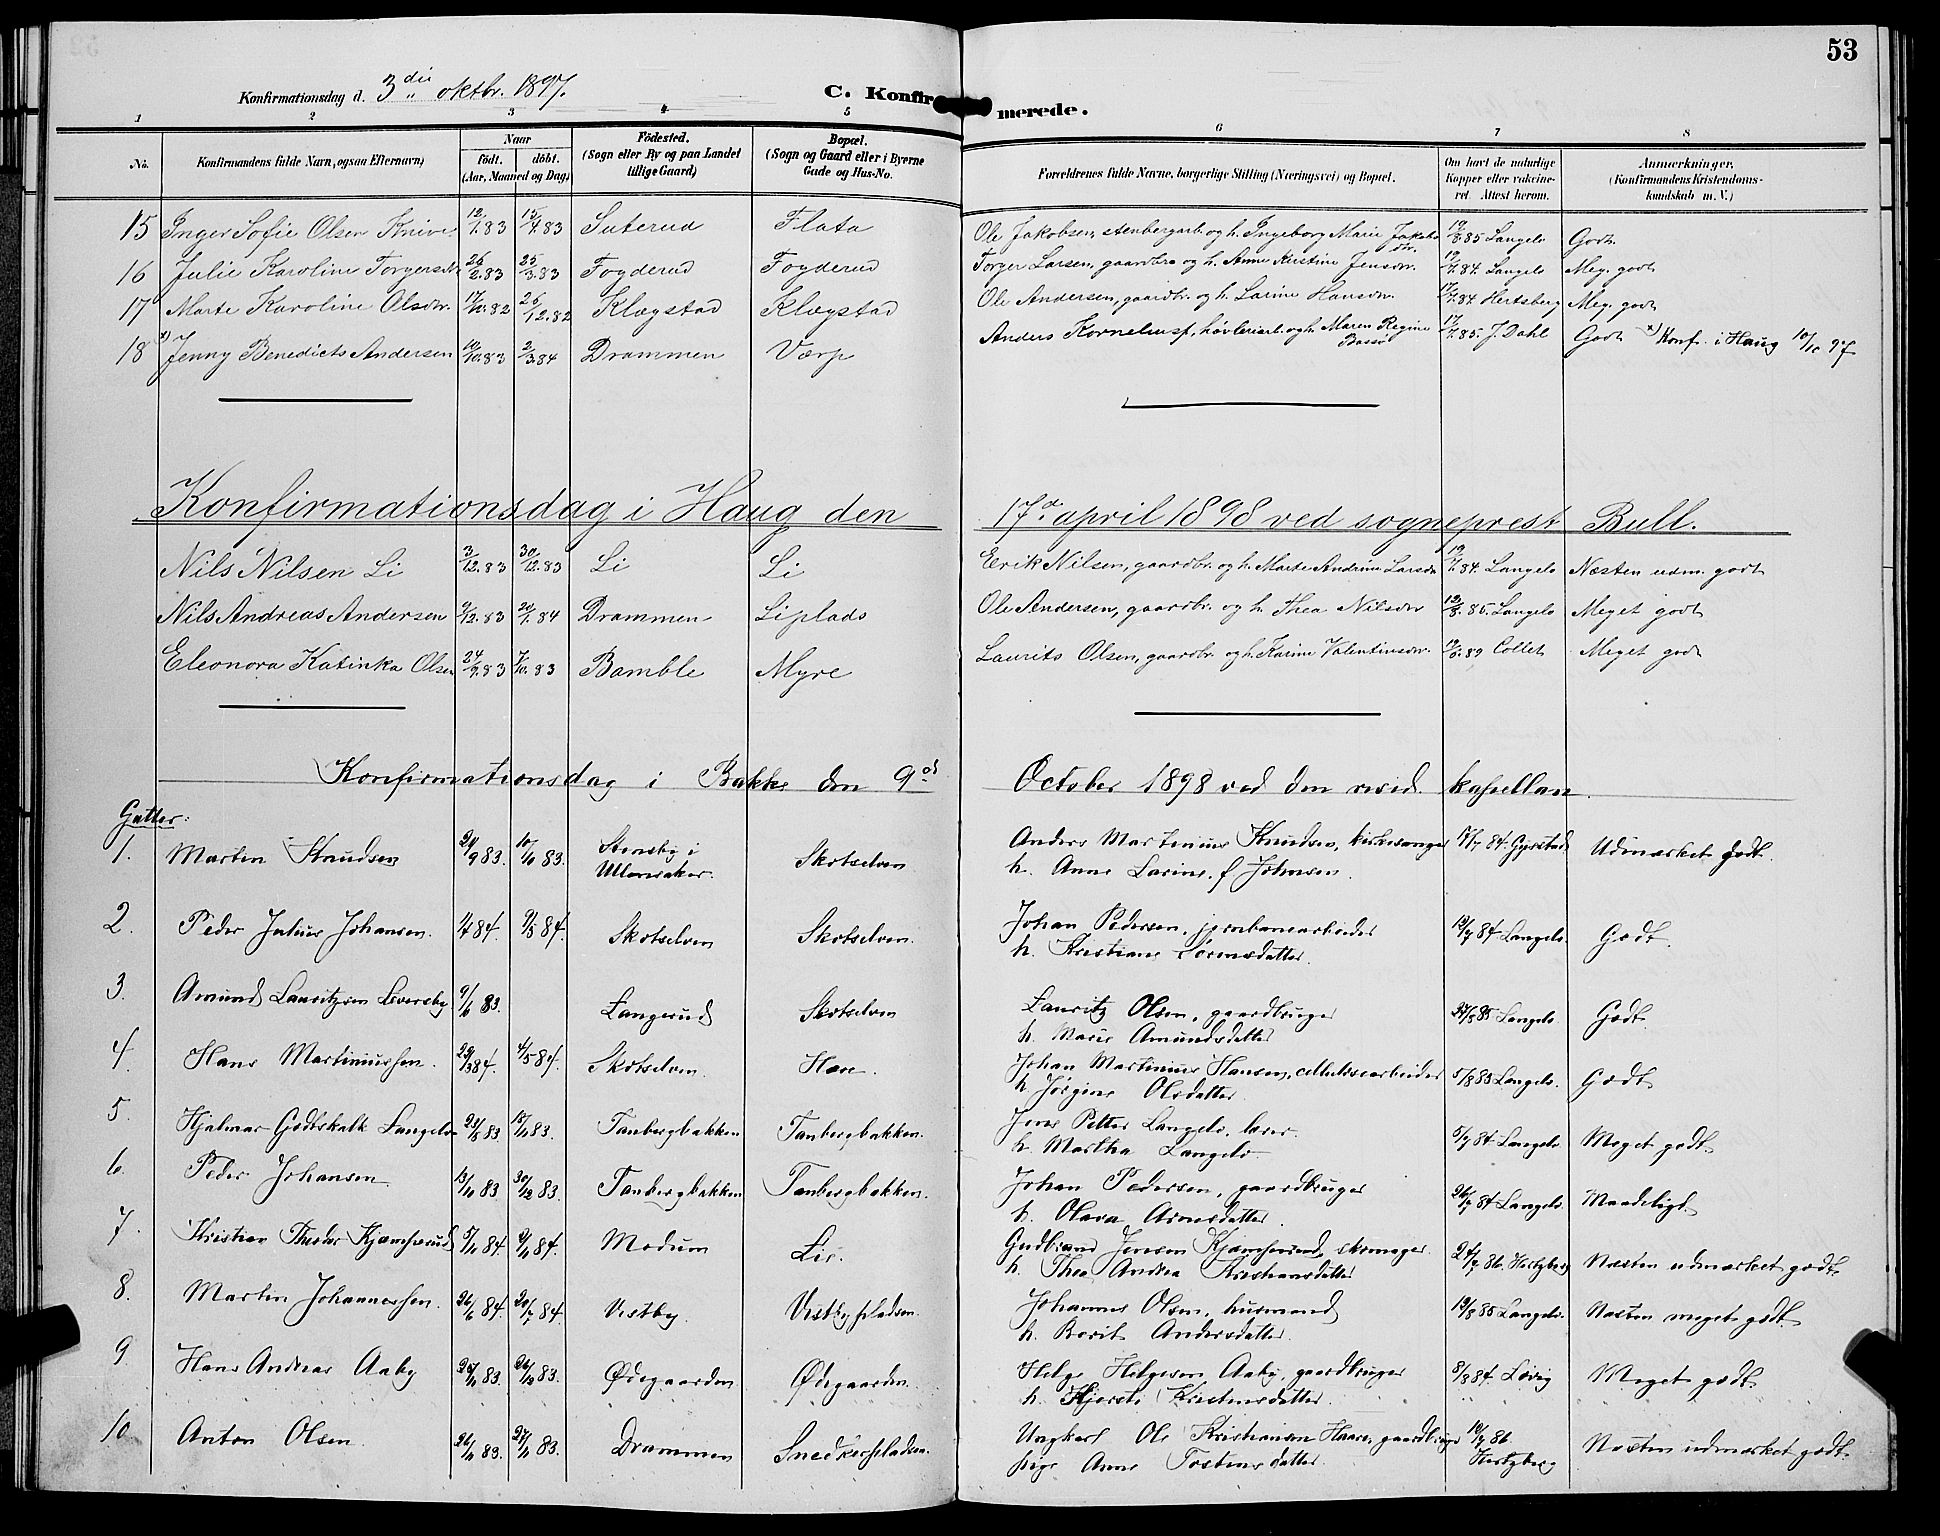 53
Konfirmationsdag d. 3die oktbr. 1897.
C. Konfirmerede.
1 2 3 4 5 6 7 8
No. Konfirmandens fulde Navn, ogsaa Efternavn) Naar født. døbt. (Aar, Maaned og Dag) Födested. (Sogn eller By og paa Landet tillige Gaard) Bopæl. (Sogn og Gaard eller i Byerne Gade og Hus-No. Forældrenes fulde Navne, borgerlige Stilling (Næringsvei) og Bopæl. Om havt de naturlige Kopper eller vakcineret. Attest herom. Anmærkninger. (Konfirmandens Kristendomskundskab m. V.)
15 Inger Sofie Olsen Knive 12/1.83 15/4.83 Saterud Flata Ole Jakobsen, stenbergarb. og h. Ingeborg Marie Jakobsdtr. 19/8.85 Langelo Godt
16 Julie Karoline Torgersdtr 26/2.83 25/3.83 Fogderud Fogderud Torger Larsen, gaardbr. og h. Anne Kirstine Jensdtr. 19/7.84. Langelo Meg. godt
17 Marte Karoline Olsdtr. 17/10.82 26/12.82 Klægstad Klægstad Ole Andersen, gaardbr. og h. Larine Hansdtr. 17/7.84. Hertsberg Meg. godt
18 x) Jenny Benedicte Andersen 19/10.83 2/3.84 Drammen Værp Anders Korneliusf, høvleriarb. og h. Maren Regine Basse 17/7.85. J. Dahl Godt x) Konf. i Haug 10/10 97
Konfirmationsdag i Haug den 17de april 1898 ved sogneprest Bull.
Nils Nilsen Li 3/12.83 30/12.83 Li Li Erik Nilsen, gaardbr. og h. Marte Andrine Larsdtr 19/7.84. Langelo Næsten udm. godt
Nils Andreas Andersen 9/12.83 20/1.84 Drammen Liplads Ole Andersen, gaardbr. og h. Thea Nilsdtr 19/8.85. Langelo Meget godt
Eleonora Katinka Olsen 24/9.83 7/10.83 Bamble Myre Laurits Olsen, gaardbr. og h. Karine Valentinsdtr. 19/6.89 Collet Meget godt
Konfirmationsdag i Bakke den 9de October 1898 ved den resid. kapellan.
Gutter:
1. Martin Knudsen 24/9 83. 10/10 83. Stensby i Ullensaker. Skotselven Anders Martinius Knudsen, kirkesanger h. Anne Larine f. Johnsen. 17/7 84. Gjerstad Udmærket godt.
2. Peder Julius Johansen. 1/4 84. 9/5 84. Skotselven Skotselven. Johan Pedersen, jernbanearbeider h. Kristiane Sørensdatter. 19/7 84 Langelo. Godt.
3. Amund Lauritzsen 9/6 83. Langerud Skotselven Lauritz Olsen, gaardbruger h. Marie Amundsdatter 27/8 85 Langelo. Godt.
4. Hans Martiniussen. 29/3 84. 4/5 84. Skotselven. Hære. Johan Martinius Hansen, cellulosearbeider h. Jørgine Olsdatter. 5/8 83 Langelo. Godt
5. Hjalmar Godtskalk Langelo 23/8 83. 18/11 83. Tanbergbakken Tanbergbakken. Jens Petter Langelo, lærer. h. Martha Langelo. 5/7 84. Langelo. Meget godt.
6. Peder Johansen 13/10 83. 30/12 83. Tanbergbakken Tanbergbakken. Johan Pedersen, gaardbruger h. Olava Arnesdatter. 26/7 84 Langelo. Maadeligt.
7. Kristian Theodor Kjæmperud 5/1 84. Modum Lie. Gudbrand Jensen Kjæmperud, skomager. h. Thea Andrea Kristiansdatter 24/7 86. Hertzberg Næsten udmærket godt.
8. Martin Johannessen. 26/6 84. 20/7 84. Vestby. Vestbypladsen. Johannes Olsen, husmand h. Berit Andersdatter. 19/8 85 Langelo. Næsten meget godt.
9 Hans Andreas Aaby 26/12 83. Ødegaarden Ødegaarden. Helge Helgesen Aaby, gaardbruger h. Kjersti Kristensdatter. 8/8 84. Løvig Meget godt.
10. Anton Olsen. 26/10 83. Drammen Snedkerpladsen. Ungkarl Ole Kristiansen Haare, gaardbruger pige Anne Tostensdatter. 19/7 86 Hertzberg Næsten udmærket godt.